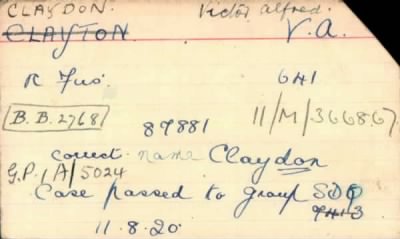 CLAYDON. Victor Alfred.
CLAYTON. V.A.
R Fus 641
B.B.2768 87881 11/M/366867
correct name Claydon
G.P./A/5024
Case passed to group SDQ
9413
11.8.20.